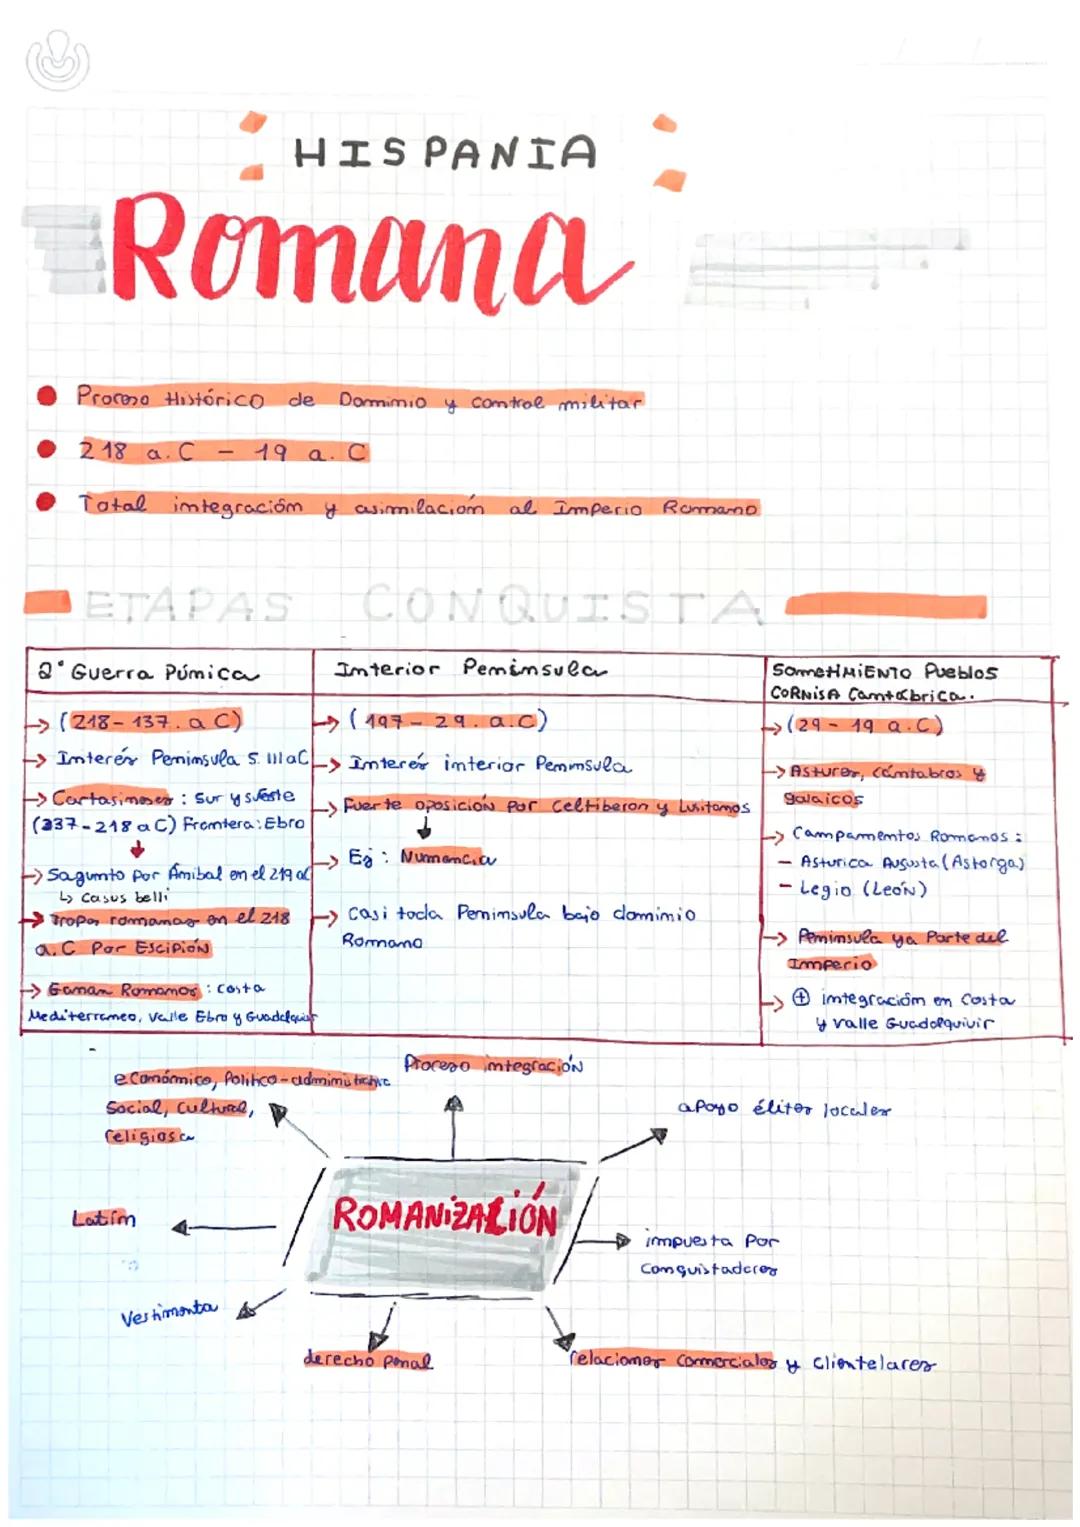 HISPANIA
Romana
Proceso Histórico de Dominio y control militar
218 a.C - 19 a.C
Total integración y asimilación al Imperio Romano
ETAPAS CONQUISTA
2ª Guerra Púnica
→ (218-137. a C)
→ Interés Peninsula S. III aC
→ Cartagineses : Sur y sureste
(237-218 a C) Frontera: Ebro
↓
→ Sagunto por Anibal en el 219 aC
↳ Casus belli
→ Tropas romanas en el 218
a.C Por Escipión
→ Ganan Romanos : Costa
Mediterraneo, Valle Ebro y Guadalquivir
Interior Peninsula
→ (197 - 29. a.C)
→ Interés interior Peninsula
→ Fuerte oposición por Celtiberon y Lusitanos
↓
→ Ej : Numancia
→ Casi toda Peninsula bajo dominio
Romano
SometiMiENTO Pueblos
CORNISA Cantabrica.
→ (29 - 19 a.C)
→ Astures, cántabros y
galaicos
→ Campamentos Romanos :
- Asturica Augusta (Astorga)
- Legio (León)
→ Peninsula ya Parte del
Imperio
→ ⊕ integración en Costa
y valle Guadalquivir
Proceso integración
económico, Político-administrativo
Social, Cultural,
religiosa
apoyo élites locales
ROMANIZACIÓN
Latín
impuesta Por
Conquistadores
Vestimenta
derecho penal
relaciones comerciales y clientelares